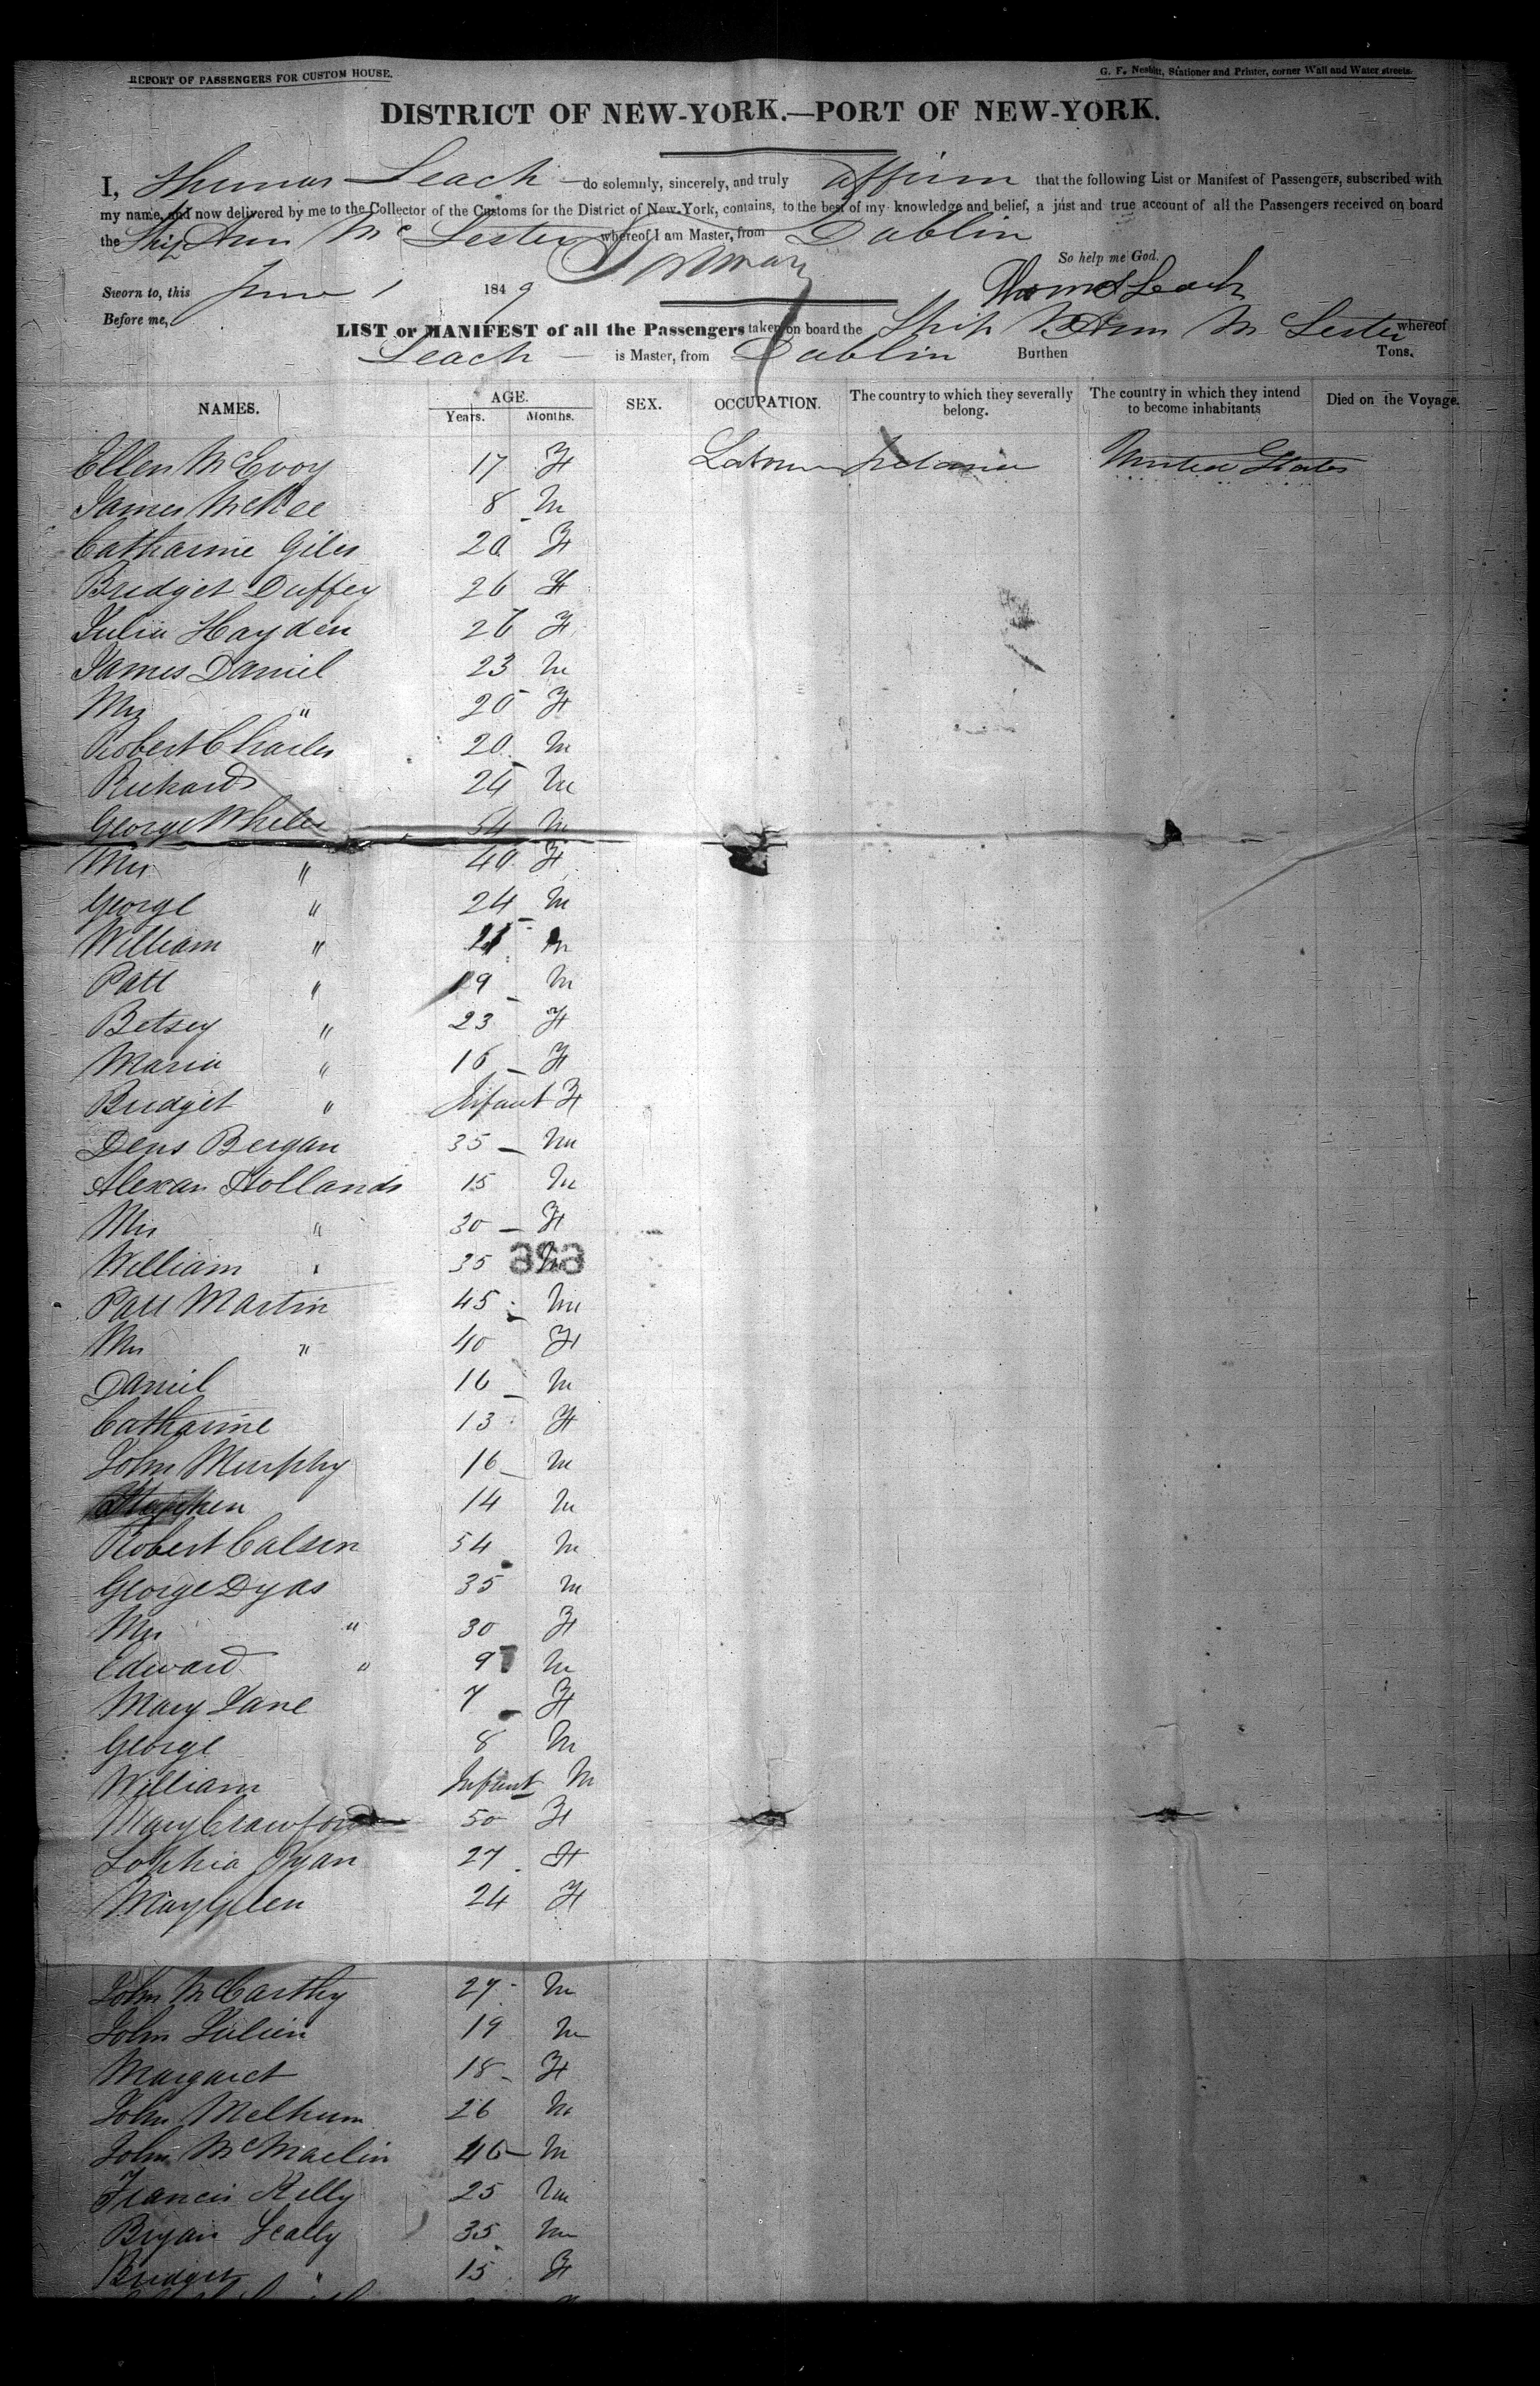 REPORT OF PASSENGERS FOR CUSTOM HOUSE.
G. F. Nesbitt, Stationer and Printer, corner Wall and Water streets.
DISTRICT OF NEW-YORK.—PORT OF NEW-YORK.
I, Thomas Leach do solemnly, sincerely, and truly affirm that the following List or Manifest of Passengers, subscribed with
my name, and now delivered by me to the Collector of the Customs for the District of New-York, contains, to the best of my knowledge and belief, a just and true account of all the Passengers received on board
the Ship Ann Mc Lester whereof I am Master, from Dublin
So help me God.
Sworn to, this June 1 1849 Thomas Leach
Before me,
LIST or MANIFEST of all the Passengers taken on board the Ship Ann Mc Lester whereof
Leach is Master, from Dublin Burthen Tons.
NAMES. AGE. Years. Months. SEX. OCCUPATION. The country to which they severally belong. The country in which they intend to become inhabitants Died on the Voyage.
Ellen McEvoy 17 F Ireland United States
James McKee 8 M
Catharine Giles 20 F
Bridget Duffey 26 F
Julia Hayden 26 F
James Daniel 23 M
Mrs " 20 F
Robert Charles 20 M
Richard 24 M
George Wheler 54 M
Mrs " 40 F
George " 24 M
William " 21 M
Patt " 19 M
Betsey " 23 F
Maria " 16 F
Bridget " Infant F
Dens Bergan 35 M
Alexan Hollands 15 M
Mrs " 30 F
William " 35 M
Patt Martin 45 M
Mrs " 40 F
Daniel 16 M
Catharine 13 F
John Murphy 16 M
Stephen 14 M
Robert 54 M
George Dyas 35 M
Mrs " 30 F
Edward " 9 M
Mary Jane 7 F
George 8 M
William Infant M
Mary Crawford 50 F
Sophia Ryan 27 F
May Glen 24 F
John McCarthy 27 M
John 19 M
Margaret 18 F
John 26 M
John 46 M
Francis Kelly 25 M
Bryan Scally 35 M
Bridget " 15 F